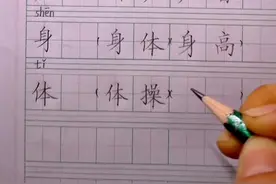 shēn
身 (身体)(身高)
tǐ
体 (体操)( )